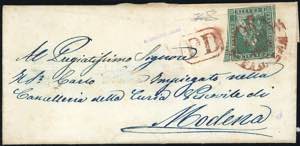 Al Pregiatissimo Signore
P.D.
Il Sig. Carlo Impiegato nella
Cancelleria della Curia Vescovile di
Modena